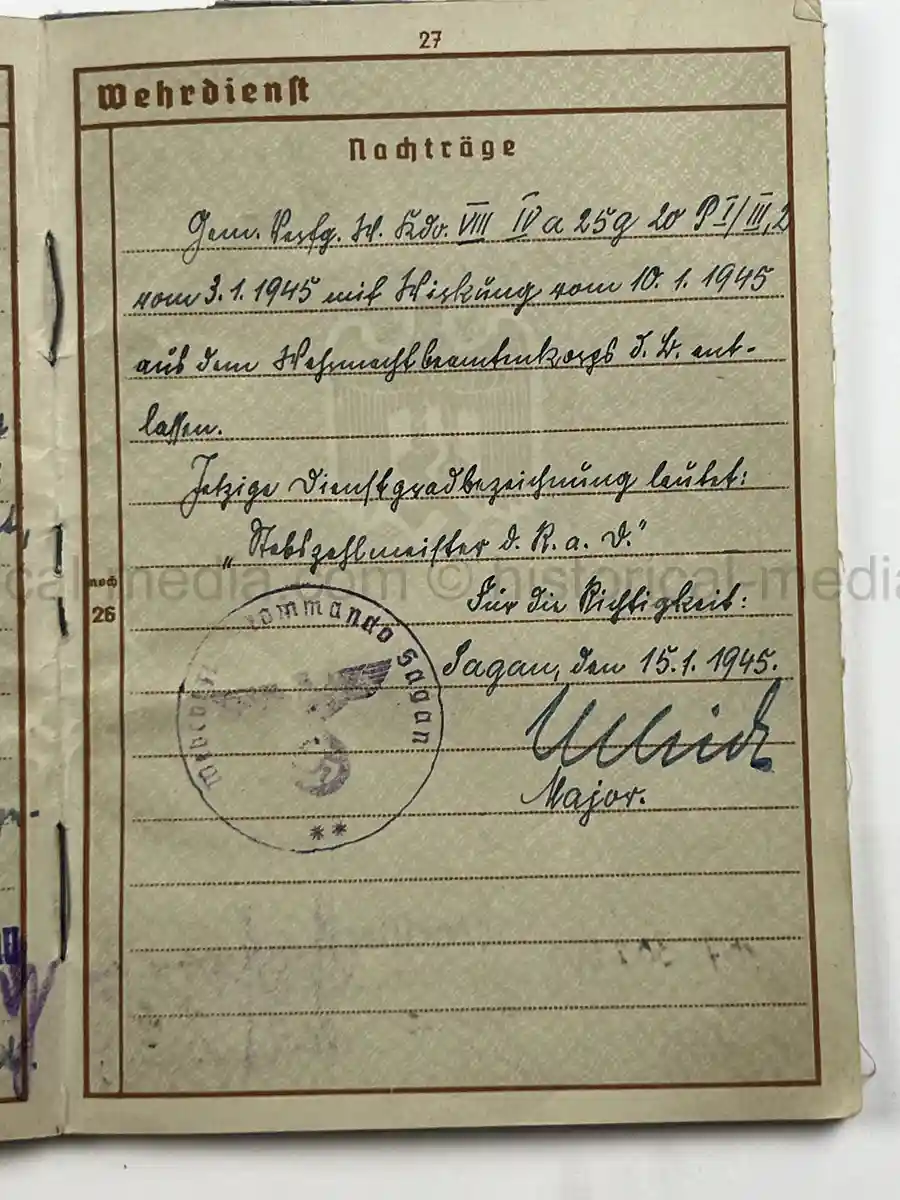 27
Wehrdienst
Nachträge
Gem. Verfg. W. Kdo. VIII IV a 25g 20 P I/III,2
vom 3.1.1945 mit Wirkung vom 10.1.1945
aus dem Wehrmachtbeamtenkorps d. B. ent-
lassen.
Jetzige Dienstgradbezeichnung lautet:
„Stabszahlmeister d. R. a. D."
noch
26
Für die Richtigkeit:
Sagan, den 15.1.1945.
Major.
Kommando Sagan
cal-media.com © historical-media